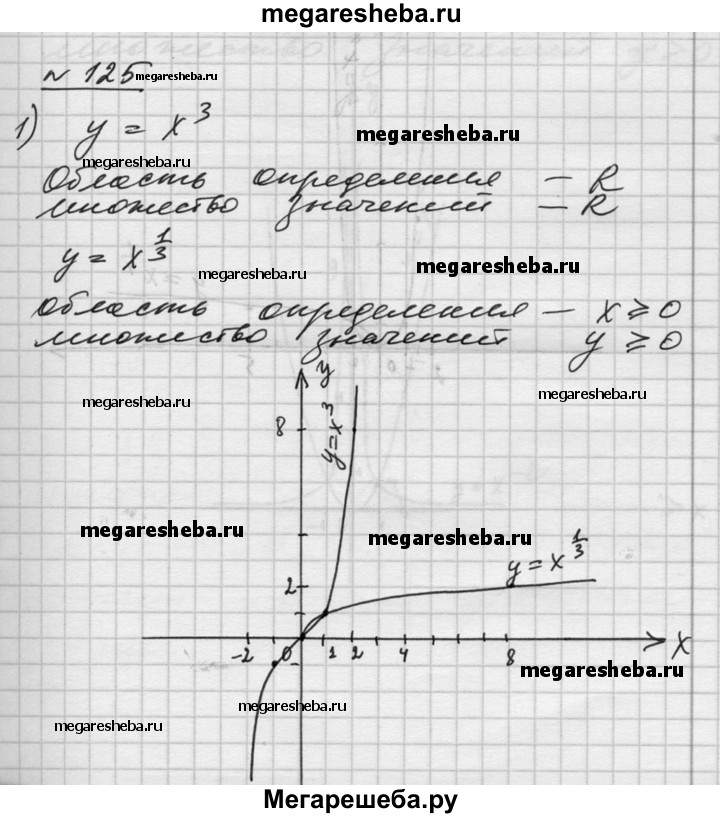 megaresheba.ru
№ 125 megaresheba.ru
1) y = x³ megaresheba.ru
megaresheba.ru
Область определения — R
множество значений — R
y = x^{1/3} megaresheba.ru megaresheba.ru
область определения — x ⩾ 0
множество значений y ⩾ 0
y
megaresheba.ru megaresheba.ru
8 y=x³
megaresheba.ru megaresheba.ru
y = x^{1/3}
2
-2 0 1 2 4 8 x
megaresheba.ru
megaresheba.ru
megaresheba.ru
Мегарешеба.ру